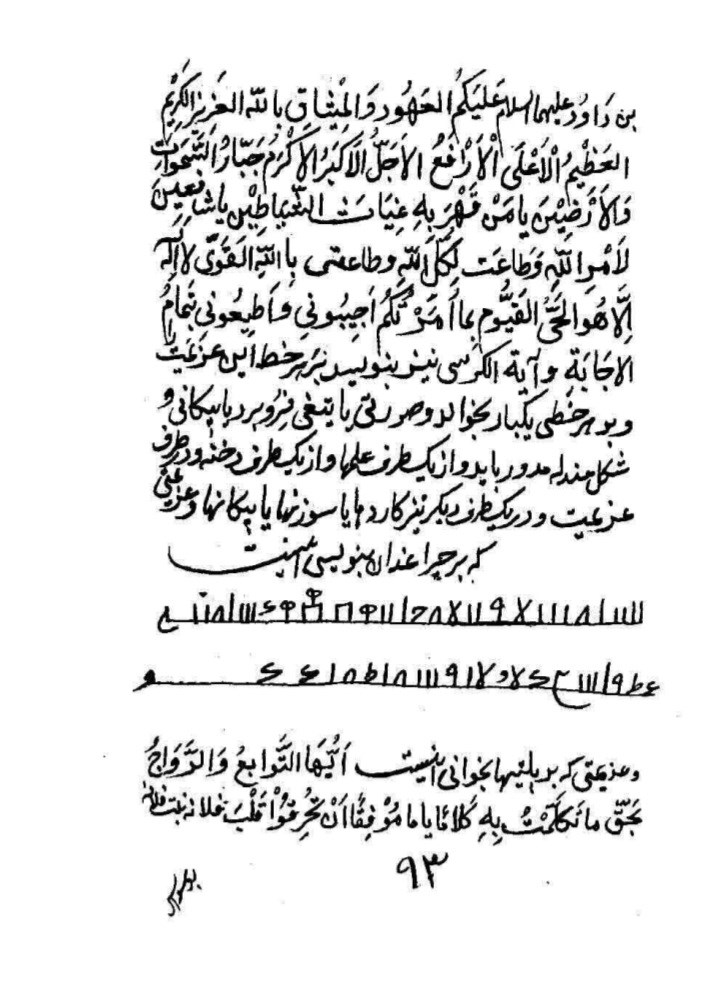 بن داود علیهما السلام عَلَیکُم العهود وَالمِیثاقِ بالله العَزیز الکَرِیْمِ
العَظیمُ الْاَعْلَی الْاَرْافَعُ الاَجَلُّ الْاَکبَرُ الاَکْرَمُ جَبّارُ السَّمَوات
وَالاَرَضِیْنَ یا مَنْ قَهَرَ بِهِ الشّیاطِیْن یا شافِعِیْنَ
لِاَمْرِ اللّهِ وَطاعَت لِکُلِّ اللّهِ وطاعتی بِاللّهِ القَوِیّ لا اِلهَ
اِلّا هُوَ الحَیُّ القَیُّوم بِما اُمَرْتُکُم اَجیبُونی وَاَطیعُونی بِتَمامِ
الاجابَةِ وآیة الکرسی نیز بنویسد بر سر خط این عزیمت
وبر هر خطی یکبار بخواند وصورتی با تیغی فرو برد با پیکانی و
شکل مندله مدور باید واز یکطرف علمها واز یکطرف دخنه ودر طرف
عزیمت ودر یکطرف دیگر نیز کاردها یا سوزنها یا پیکانها وعزیمتی
که بر چراغدان بنویسی اینست
وعزیمتی که بر پلیتها بخوانی اینست اَیُّهَا التَّوابعُ وَالزَّوابعُ
بَحَقّ ما تَکَلَّمْتُ بِهِ کَلاماً یا ما مُوْفِقًا اَنْ تُحْرِقُوْا قَلْبَ فلانه بنت فلانه
۹۳